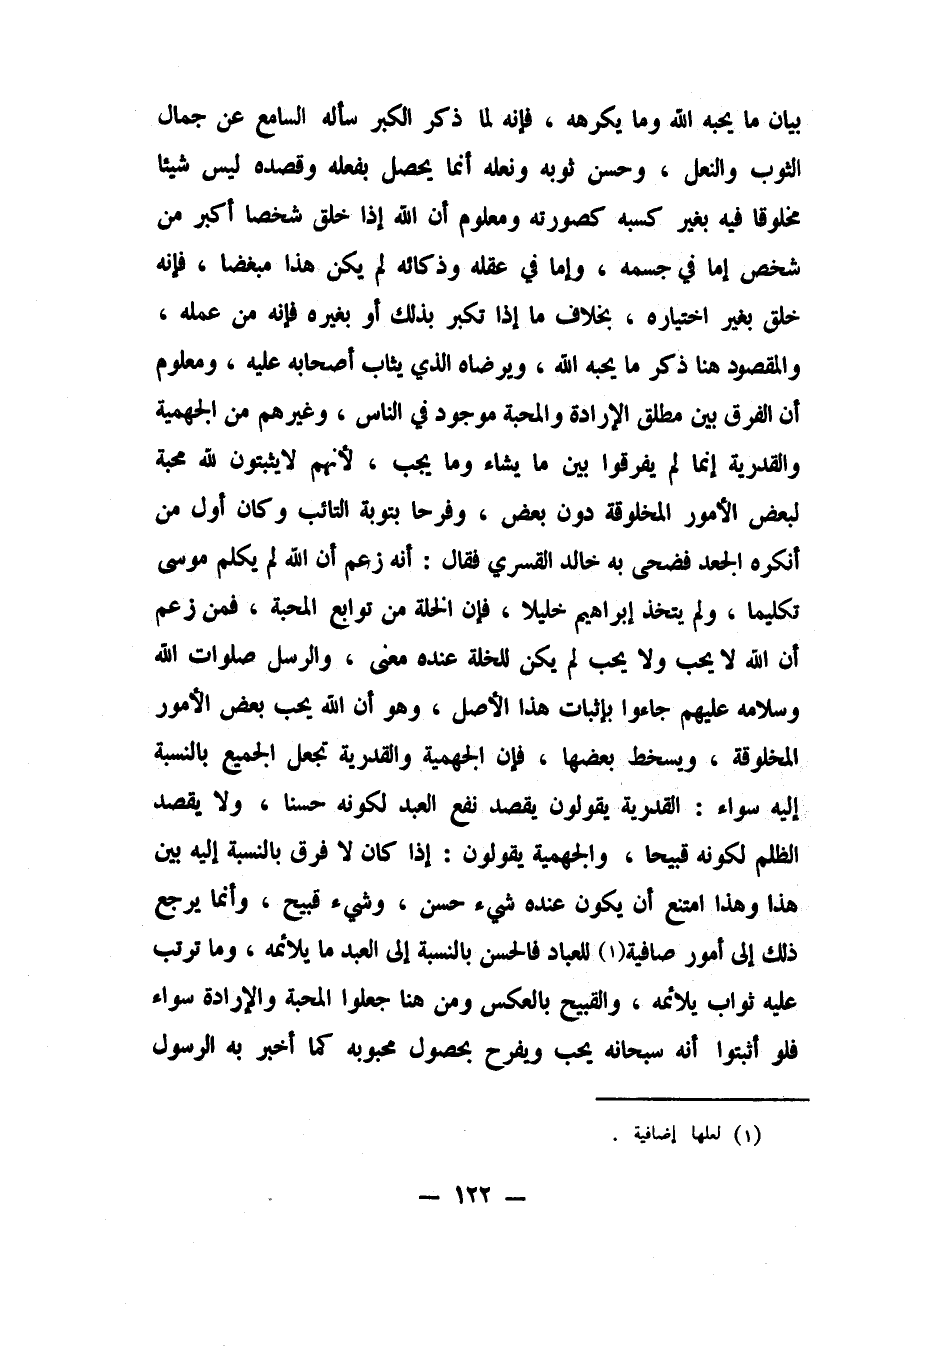 بيان ما يحبه الله وما يكرهه ، فإنه لما ذكر الكبر سأله السامع عن جمال
الثوب والنعل ، وحسن ثوبه ونعله أنما يحصل بفعله وقصده ليس شيئا
مخلوقا فيه بغير كسبه كصورته ومعلوم أن الله إذا خلق شخصا أكبر من
شخص إما في جسمه ، وإما في عقله وذكائه لم يكن هذا مبغضا ، فإنه
خلق بغير اختياره ، بخلاف ما إذا تكبر بذلك أو بغيره فإنه من عمله ،
والمقصود هنا ذكر ما يحبه الله ، ويرضاه الذي يثاب أصحابه عليه ، ومعلوم
أن الفرق بين مطلق الإرادة والمحبة موجود في الناس ، وغيرهم من الجهمية
والقدرية إنما لم يفرقوا بين ما يشاء وما يجب ، لأنهم لايثبتون لله محبة
لبعض الأمور المخلوقة دون بعض ، وفرحا بتوبة التائب وكان أول من
أنكره الجعد فضحى به خالد القسري فقال : أنه زعم أن الله لم يكلم موسى
تكليما ، ولم يتخذ إبراهيم خليلا ، فإن الخلة من توابع المحبة ، فمن زعم
أن الله لا يحب ولا يحب لم يكن للخلة عنده معنى ، والرسل صلوات الله
وسلامه عليهم جاءوا بإثبات هذا الأصل ، وهو أن الله يحب بعض الأمور
المخلوقة ، ويسخط بعضها ، فإن الجهمية والقدرية تجعل الجميع بالنسبة
إليه سواء : القدرية يقولون يقصد نفع العبد لكونه حسنا ، ولا يقصد
الظلم لكونه قبيحا ، والجهمية يقولون : إذا كان لا فرق بالنسبة إليه بين
هذا وهذا امتنع أن يكون عنده شيء حسن ، وشيء قبيح ، وأنما يرجع
ذلك إلى أمور صافية(١) للعباد فالحسن بالنسبة إلى العبد ما يلائمه ، وما ترتب
عليه ثواب يلائمه ، والقبيح بالعكس ومن هنا جعلوا المحبة والإرادة سواء
فلو أثبتوا أنه سبحانه يحب ويفرح بحصول محبوبه كما أخبر به الرسول
(١) لعلها إضافية .
— ١٢٢ —